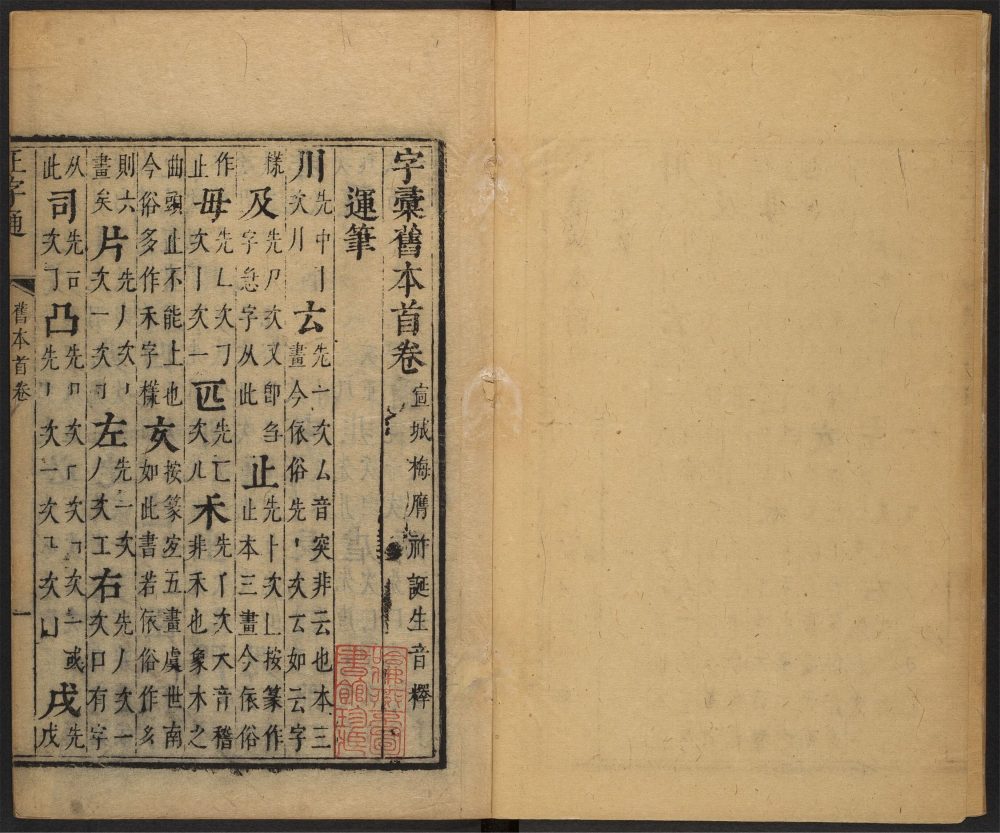 字彚舊本首卷 宣城梅膺祚誕生音釋
運筆
川 先中丨次川 𠫓 先一次厶音突非云也本三畫今依俗先丶次云如云字
樣 及 先𠂆次又卽刍字㤂字从此 止 先⺊次丄按篆作止本三畫今依俗
作止 毋 先𠃊次㇆次丨次一 匹 先匚次儿 禾 先丅次大音稽非禾也象木之
曲頭止不能上也今俗多作禾字樣 按篆五畫虞世南如此書若依俗作
則六畫矣 片 先丿次丨次一次㇆ 左 先一次丿次工 右 先丿次一次口有字
从此 司 先𠮛次㇆ 凸 先丨次一次㇅次凵 或 戌 先戊
正字通 舊本首卷 一
哈佛燕京圖
書館珍藏